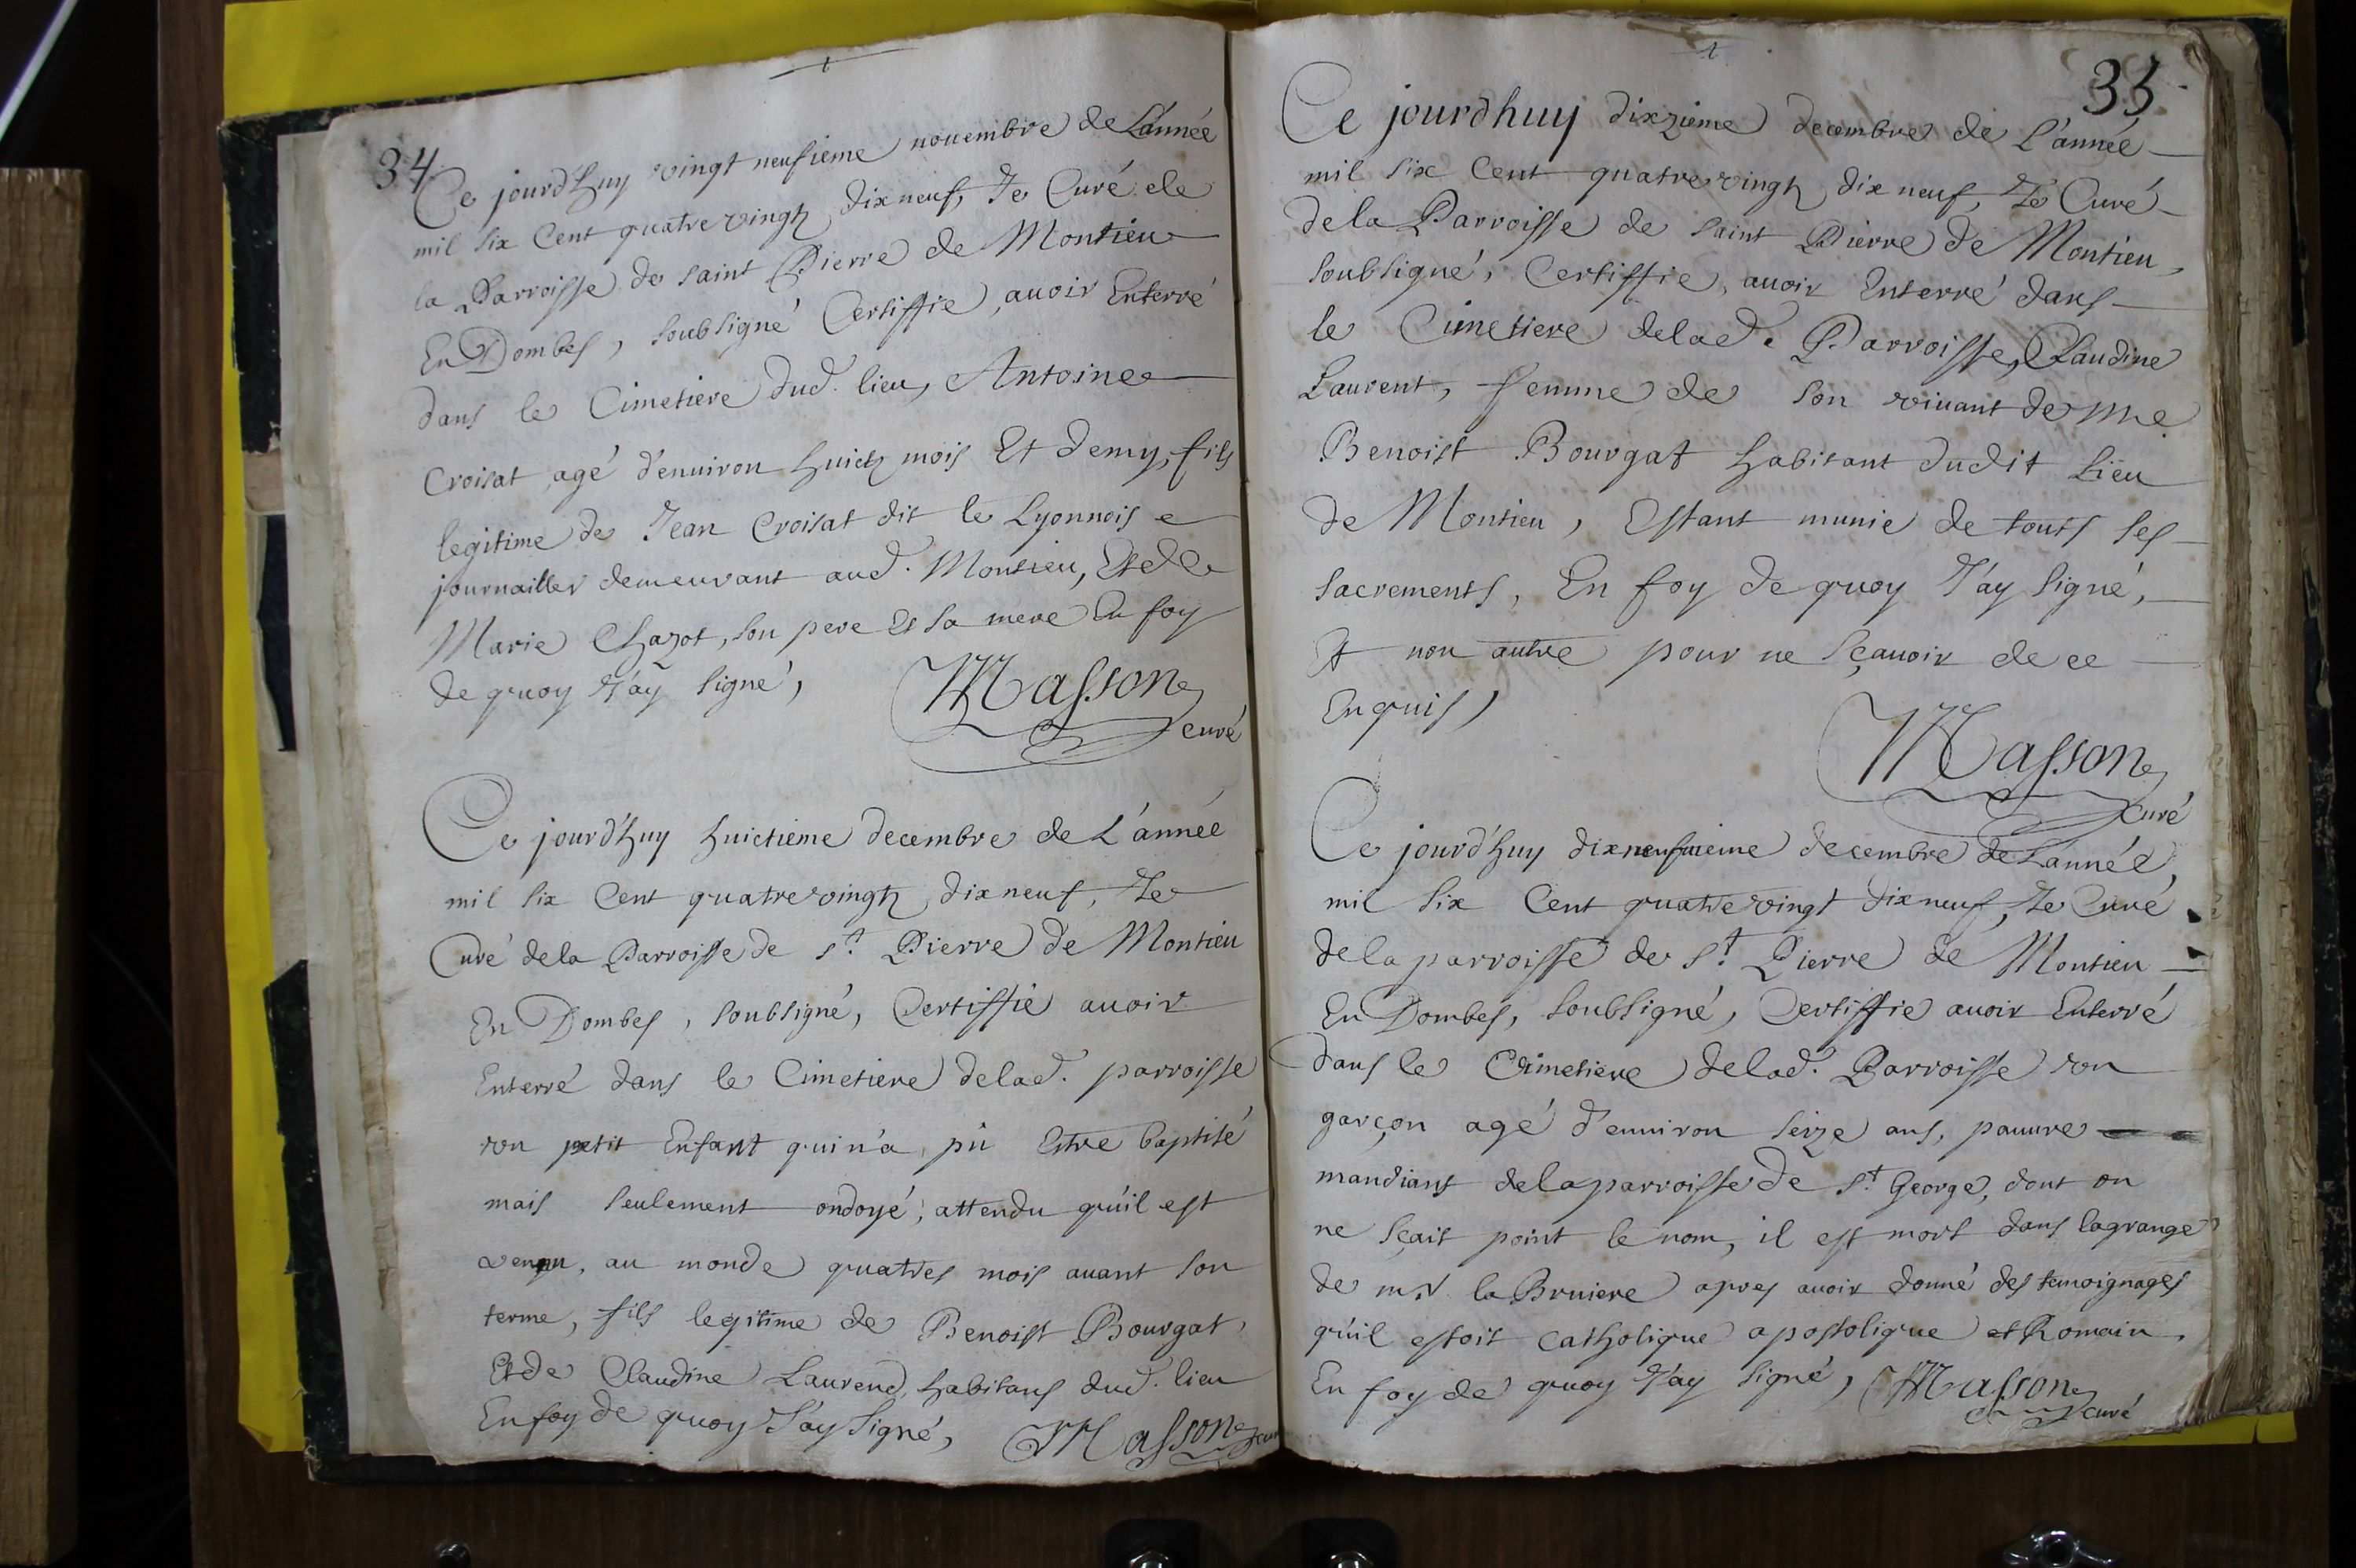 34
Ce jourd'huy vingt neufieme nouembre de L'année
mil six Cent quatre vingtz dix neuf, Je Curé de
la Parroisse de saint Pierre de Montieu
En Dombes, soubsigné Certiffie, auoir Enterré
dans le Cimetiere dud. lieu, Antoine
Croisat agé d'enuiron huict mois Et demy, fils
legitime de Jean Croisat dit le Lyonnois
journaillier demeurant aud. Montieu, Et de
Marie Chazot, son pere Et sa mere En foy
de quoy J'ay signé,
Masson
curé
Ce jourd'huy huictieme decembre de L'année
mil six Cent quatre vingtz dix neuf, Je
Curé de la Parroisse de st. Pierre de Montieu
En Dombes, soubsigné, Certiffie auoir
Enterré dans le Cimetiere de lad. parroisse
von petit Enfant qui n'a pû Estre baptisé
mais seulement ondoyé, attendu qu'il est
venu, au monde quatres mois auant son
terme, fils legitime de Benoist Bourgat,
Et de Claudine Laurend, habitans dud. lieu
En foy de quoy J'ay signé, Masson
35
Ce jourdhuy dixzieme decembre de L'année
mil six Cent quatre vingtz dix neuf, Je Curé
de la Parroisse de saint Pierre de Montieu,
soubsigné, Certiffie, auoir Enterré dans
le Cimetiere de lad. Parroisse, Claudine
Laurent, femme de son viuant de me
Benoist Bourgat habitant dudit Lieu
de Montieu, Estant munie de touts ses
sacrements, En foy de quoy J'ay signé,
Et non autre pour ne sçauoir de ce
Enquis,
Masson
Curé
Ce jourd'huy dixneufuieme decembre de L'année,
mil six Cent quatre vingt dix neuf, Je Curé
de la parroisse de st. Pierre de Montieu
En Dombes, soubsigné, Certiffie auoir Enterré
dans le Cimetiere de lad. Parroisse von
garçon agé d'enuiron seize ans, pauure
mandiant de la parroisse de st. George, dont on
ne sçait point le nom, il est mort dans la grange
de mr. la Bruiere apres auoir donné des temoignages
qu'il estoit Catholique apostolique et Romain,
En foy de quoy J'ay signé, Masson
curé